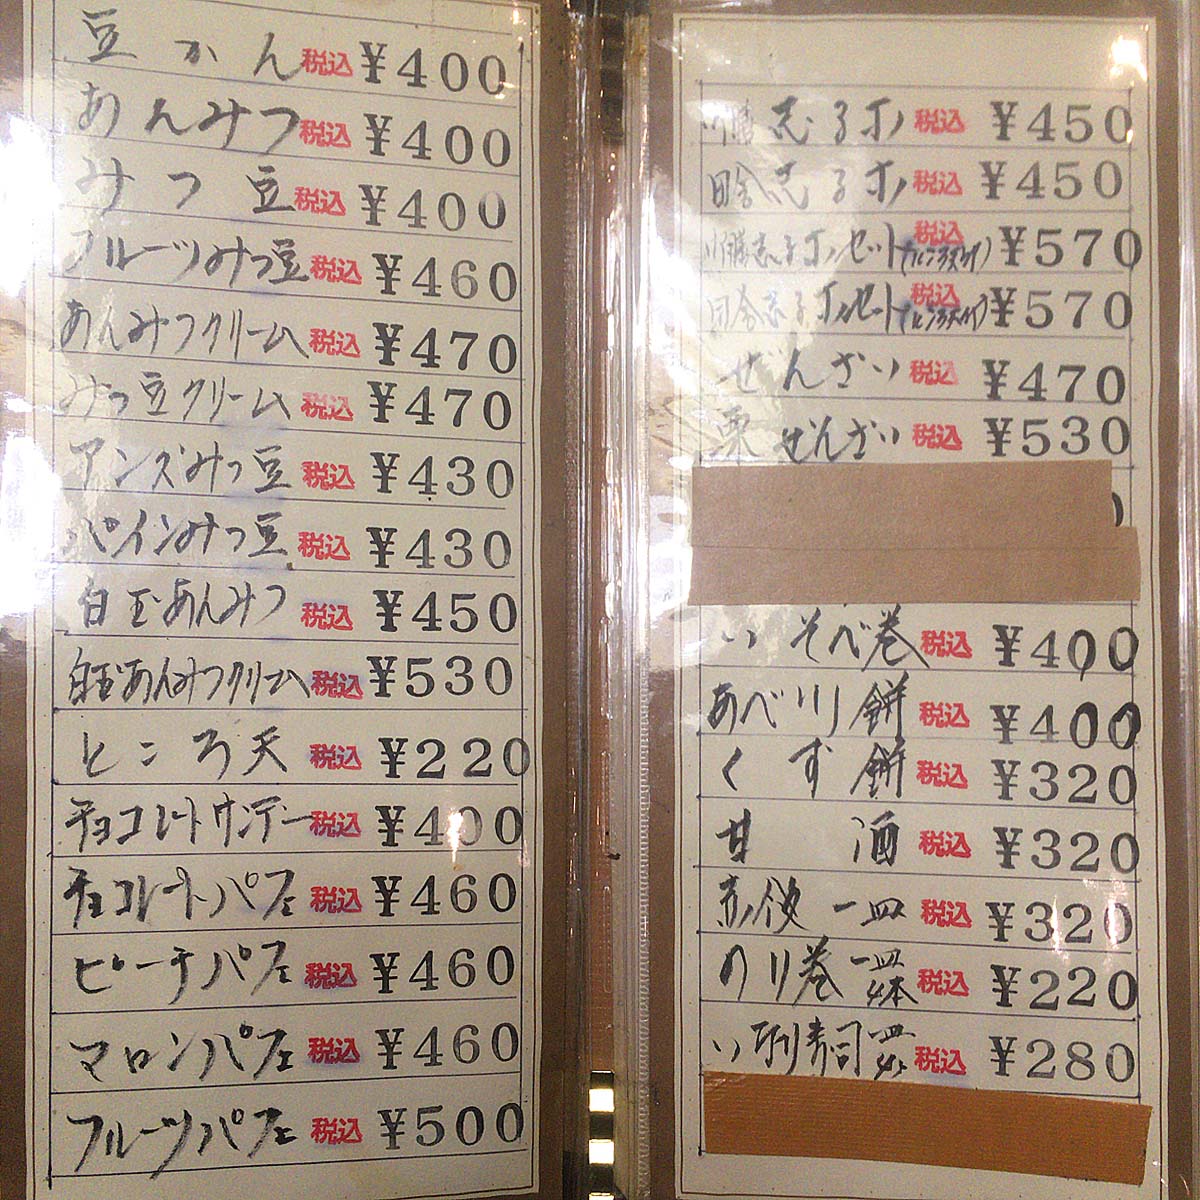 豆かん 税込 ¥400
あんみつ 税込 ¥400
みつ豆 税込 ¥400
フルーツみつ豆 税込 ¥460
あんみつクリーム 税込 ¥470
みつ豆クリーム 税込 ¥470
アンズみつ豆 税込 ¥430
パインみつ豆 税込 ¥430
白玉あんみつ 税込 ¥450
白玉あんみつクリーム 税込 ¥530
ところ天 税込 ¥220
チョコレートサンデー 税込 ¥400
チョコレートパフェ 税込 ¥460
ピーチパフェ 税込 ¥460
マロンパフェ 税込 ¥460
フルーツパフェ 税込 ¥500
志るこ 税込 ¥450
田舎志るこ 税込 ¥450
志るこセット 税込 ¥570
田舎志るこセット 税込 ¥570
ぜんざい 税込 ¥470
栗ぜんざい 税込 ¥530
いそべ巻 税込 ¥400
あべ川餅 税込 ¥400
くず餅 税込 ¥320
甘酒 税込 ¥320
赤飯 一皿 税込 ¥320
のり巻 一皿 4本 税込 ¥220
いなり寿司 一皿 税込 ¥280